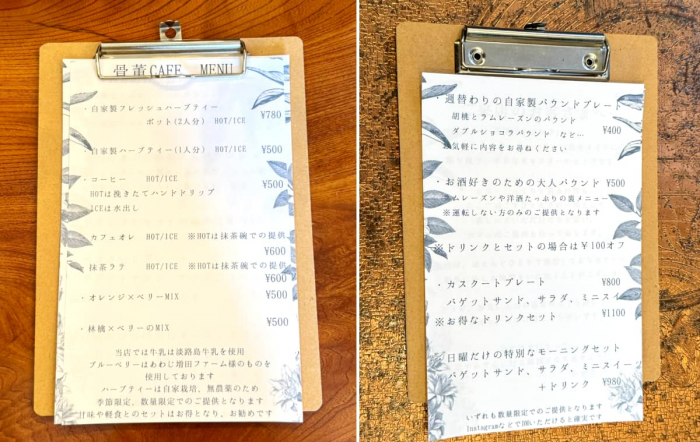 骨董CAFE MENU
・自家製フレッシュハーブティー
ポット(2人分) HOT/ICE ¥780
・自家製ハーブティー(1人分) HOT/ICE ¥500
・コーヒー HOT/ICE ¥500
HOTは挽きたてハンドドリップ
ICEは水出し
カフェオレ HOT/ICE ※HOTは抹茶碗での提供
¥600
抹茶ラテ HOT/ICE ※HOTは抹茶碗での提供
¥600
・オレンジ×ベリーMIX ¥500
・林檎×ベリーのMIX ¥500
当店では牛乳は淡路島牛乳を使用
ブルーベリーはあわじ増田ファーム様のものを
使用しております
ハーブティーは自家栽培、無農薬のため
季節限定、数量限定でのご提供となります
甘味や軽食とのセットはお得となり、お勧めです
・週替わりの自家製パウンドプレート
胡桃とラムレーズンのパウンド
ダブルショコラパウンド など… ¥400
お気軽に内容をお尋ねください
・お酒好きのための大人パウンド ¥500
ラムレーズンや洋酒たっぷりの裏メニュー
※運転しない方のみのご提供となります
※ドリンクとセットの場合は¥100オフ
・カスクートプレート ¥800
バゲットサンド、サラダ、ミニスイ
※お得なドリンクセット ¥1100
日曜だけの特別なモーニングセット
バゲットサンド、サラダ、ミニスイーツ
+ドリンク ¥980
いずれも数量限定でのご提供となります
InstagramなどでDMいただけると確実です